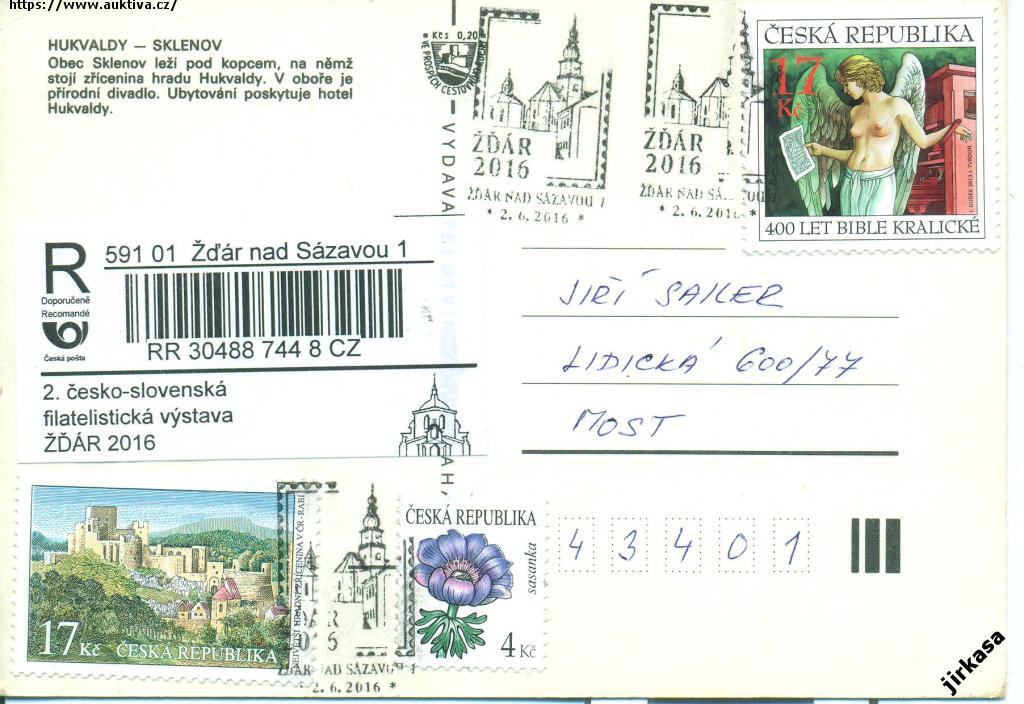 https://www.auktiva.cz/
HUKVALDY — SKLENOV
Obec Sklenov leží pod kopcem, na němž
stojí zřícenina hradu Hukvaldy. V oboře je
přírodní divadlo. Ubytování poskytuje hotel
Hukvaldy.
Kčs 0,20
VE PROSPĚCH CESTOVNÍ
VYDAVATELSTVÍ
ŽĎÁR
2016
ŽĎÁR NAD SÁZAVOU 1
* 2.6.2016 *
ŽĎÁR
2016
ŽĎÁR NAD SÁZ
* 2.6.201
ČESKÁ REPUBLIKA
17
Kč
J. DUDEK 2013 J. TVRDOŇ
400 LET BIBLE KRALICKÉ
R
Doporučeně
Recomandé
Česká pošta
591 01 Žďár nad Sázavou 1
RR 30488 744 8 CZ
2. česko-slovenská
filatelistická výstava
ŽĎÁR 2016
JIŘÍ SAILER
LIDICKÁ 600/77
MOST
43401
17 Kč ČESKÁ REPUBLIKA
ZŘÍCENINA V ČR - RABÍ
ŽĎÁR NAD SÁZAVOU 1
2.6.2016 *
ČESKÁ REPUBLIKA
sasanka
4 Kč
jirkasa